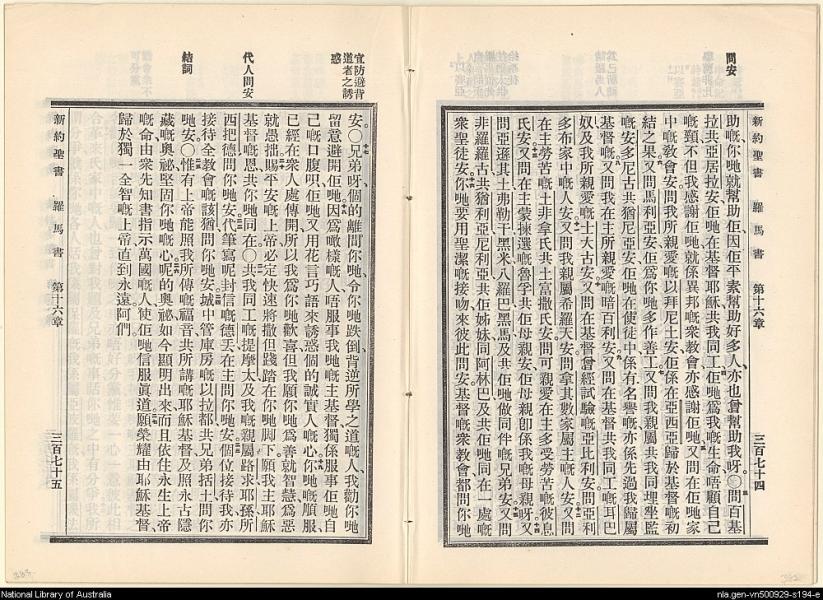 問安
新約聖書 羅馬書 第十六章 三百七十四
助嘅你哋就幫助佢因佢平素幫助好多人亦也曾幫助我呀〇問百基
拉共亞居拉安佢哋在基督耶穌共我同工佢哋爲我嘅生命唔顧自己
嘅頸不但我感謝佢哋就係異邦嘅衆教會亦感謝佢哋又問在佢哋家
中嘅教會安問我所親愛嘅以拜尼土安佢係在亞西亞歸於基督嘅初
結之果又問馬利亞安佢爲你哋多作善工又問我親屬共我同埋坐監
嘅安多尼古共猶尼亞安佢哋在使徒中係有名譽嘅亦係先過我歸屬
基督嘅又問我在主所親愛嘅暗百利安又問在基督共我同工嘅耳巴
奴及我所親愛嘅士大古安又問在基督曾經試驗嘅亞比利安問亞利
多布家中嘅人安又問我親屬希羅天安問拿其數家屬主嘅人安又問
在主勞苦嘅土非拿氏共土富撒氏安問可親愛在主多受勞苦嘅彼息
氏安又問在主蒙揀選嘅魯孚共佢母親安佢母親卽係我嘅母親呀又
問亞遜其土弗勒干黑米八羅巴黑馬及共佢哋做同伴嘅兄弟安又問
非羅羅古共猶利亞尼利亞共佢姊妹同阿林巴及共佢哋同在一處嘅
衆聖徒安你哋要用聖潔嘅接吻來彼此問安基督嘅衆教會都問你哋
宜防避背
道者之誘
惑
代人問安
結詞
安〇兄弟呀個的離間你哋令你哋跌倒背逆所學之道嘅人我勸你哋
留意避開佢哋因爲噉樣嘅人唔服事我哋嘅主基督獨係服事佢哋自
己嘅口腹呮佢哋又用花言巧語來誘惑個的誠實人嘅心你哋嘅順服
已經在衆人處傳開所以我爲你哋歡喜但我願你哋爲善就智慧爲惡
就愚拙賜平安嘅上帝必定快速將撒但踐踏在你哋脚下願我主耶穌
基督嘅恩共你哋同在〇共我同工嘅提摩太及我嘅親屬路求耶孫所
西把德問你哋安代筆寫呢封信嘅德丟在主問你哋安個位接待我亦
接待全教會嘅該猶問你哋安城中管庫房嘅以拉都共兄弟括土問你
哋安〇惟有上帝能照我所傳嘅福音共所講嘅耶穌基督及照永古隱
藏嘅奧祕堅固你哋嘅心呢的奧祕如今顯明出來而且依住永生上帝
嘅命由衆先知書指示萬國嘅人使佢哋信服眞道願榮耀由耶穌基督
歸於獨一全智嘅上帝直到永遠阿們
新約聖書 羅馬書 第十六章 三百七十五
National Library of Australia
nla.gen-vn500929-s194-e